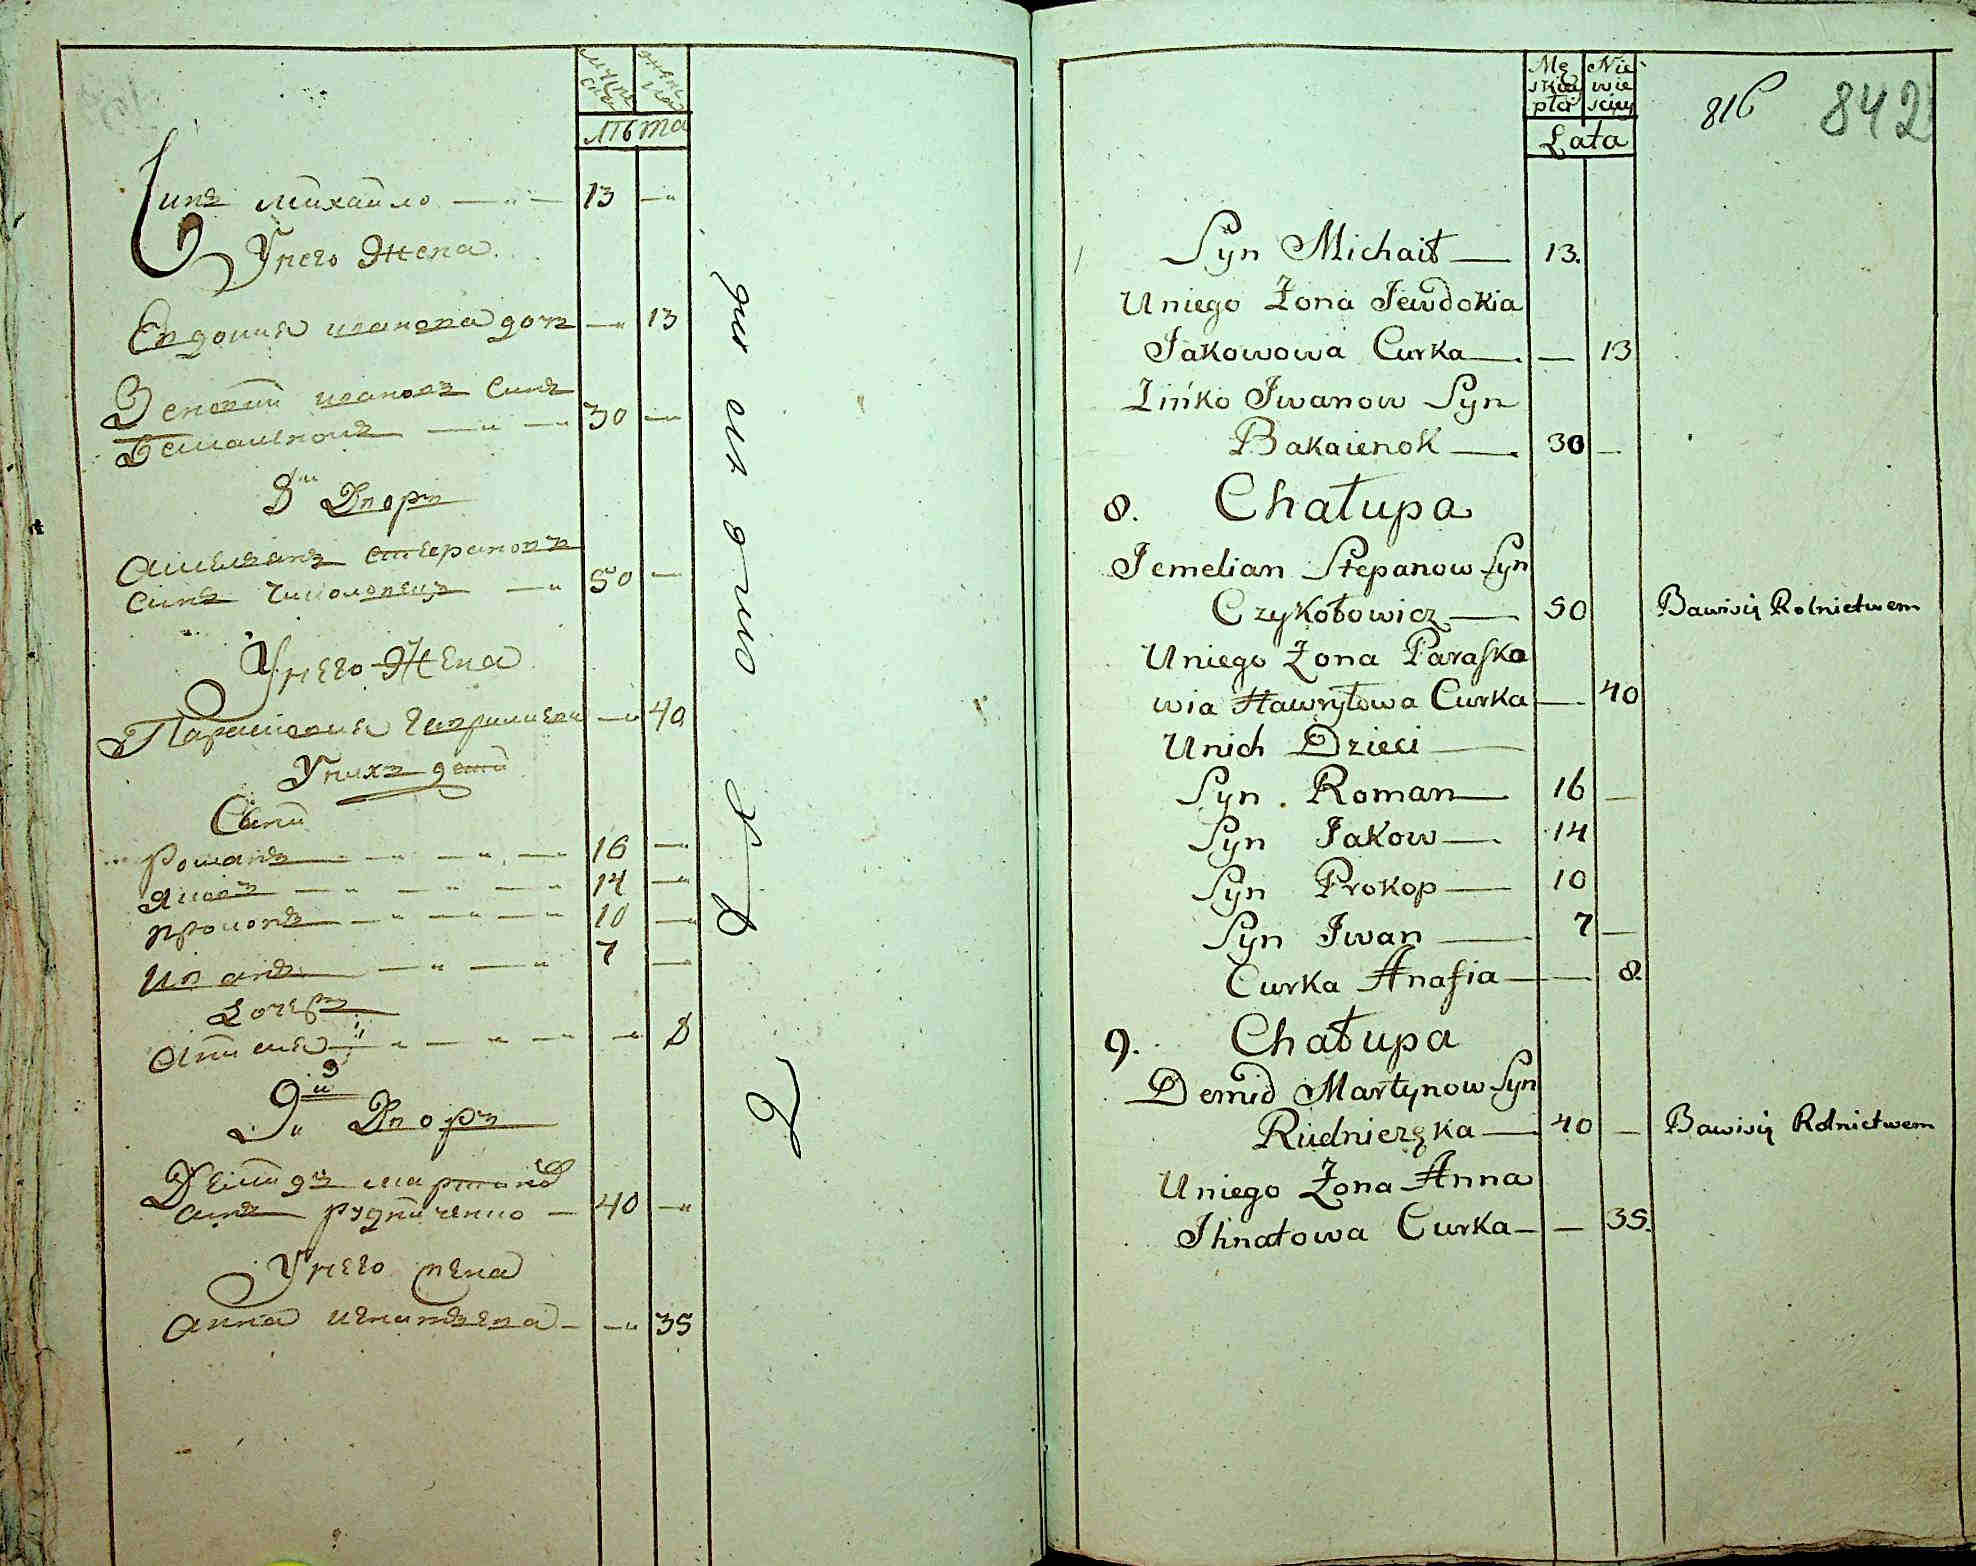 Лѣта
Синъ Михайло 13
У него Жена
Евдокия Иванова дочь 13
Зеновий Ивановъ Синъ
30
8й Дворъ
Амельянъ Степановъ
Синъ 50
У него Жена
Парасковия Гаврилова 40
У нихъ дети
Сыни
Романъ 16
Яковъ 14
Прокопъ 10
Иванъ 7
Дочерь
8
9й Дворъ
Демидъ Мартинов
Синъ Рудниченко 40
У него жена
Анна Игнатьева 35
Mę Nie
skiey wie
płci sciey
Łata
816 842
Syn Michaił 13.
Uniego Żona Jewdokia
Jakowowa Curka 13
Zińko Iwanow Syn
Bakaienok 30
8. Chałupa
Jemelian Stepanow Syn
Czykołowicz 50 Bawisię Rolnictwem
Uniego Żona Parasko
wia Hawryłowa Curka 40
Unich Dzieci
Syn Roman 16
Syn Jakow 14
Syn Prokop 10
Syn Iwan 7
Curka Anasia 8
9. Chałupa
Demid Martynow Syn
Rudnieręka 40 Bawisię Rolnictwem
Uniego Żona Anna
Ihnatowa Curka 35.